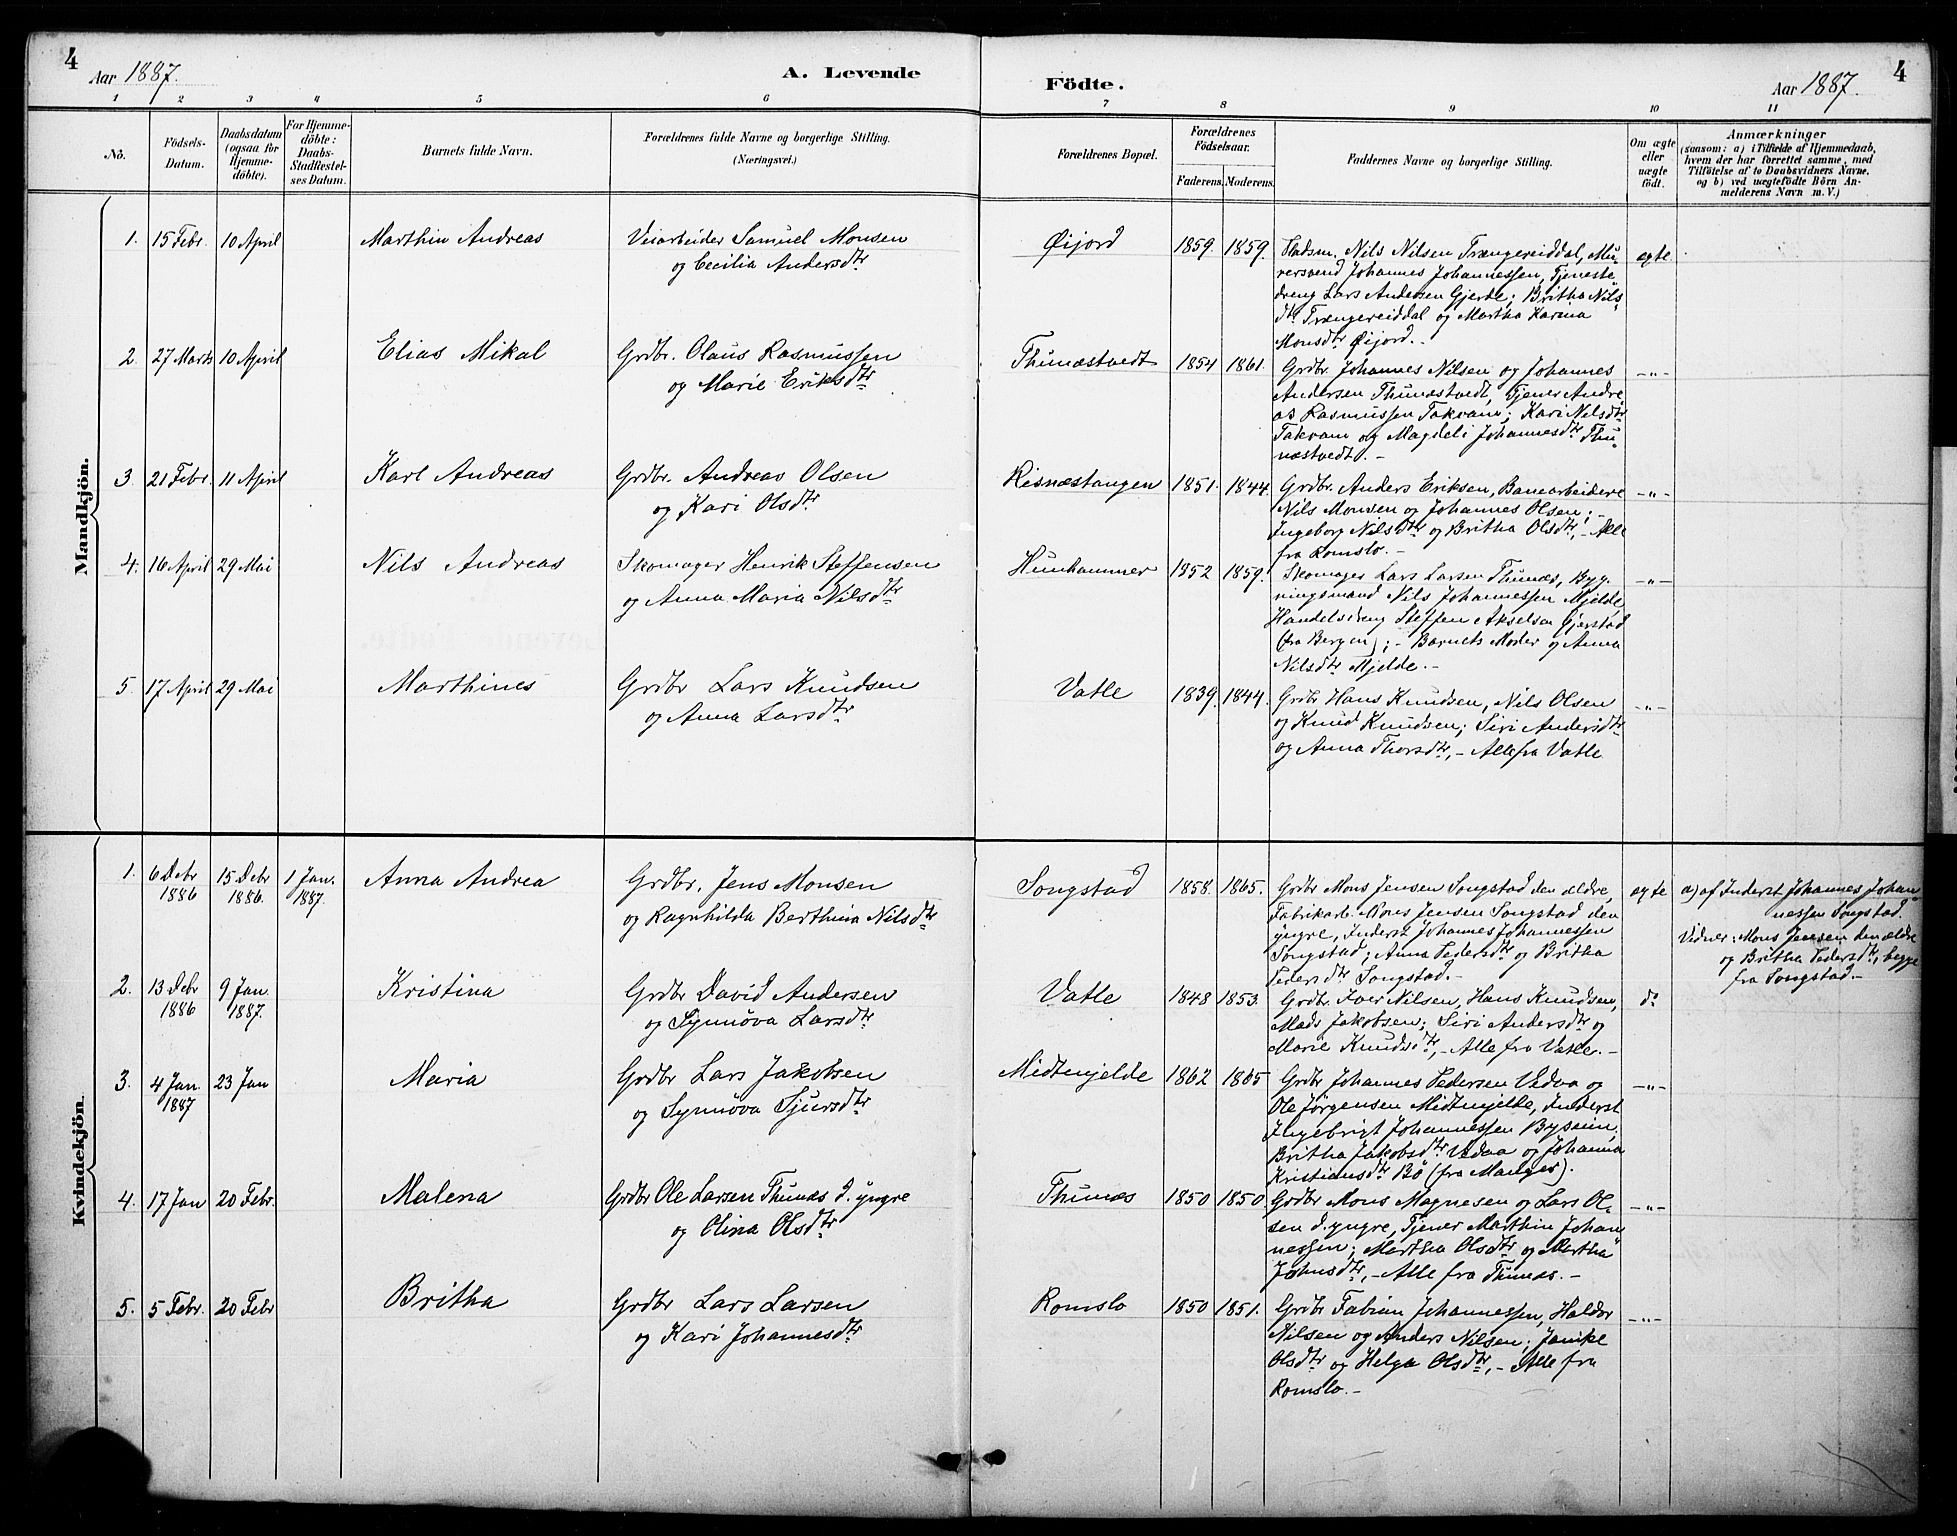 4
Aar 1887.
A. Levende
Födte.
Aar 1887.
4
1 2 3 4 5 6 7 8 9 10 11
No.
Födsels-
Datum.
Daabsdatum
(ogsaa for
Hjemme-
döbte).
For Hjemme-
döbte:
Daabs-
Stadfæstel-
ses Datum.
Barnets fulde Navn.
Forældrenes fulde Navne og borgerlige Stilling.
(Næringsvei.)
Forældrenes Bopæl.
Forældrenes
Födselsaar.
Faderens. Moderens.
Faddernes Navne og borgerlige Stilling.
Om ægte
eller
uægte
födt.
Anmærkninger
(saasom: a) i Tilfælde af Hjemmedaab,
hvem der har forrettet samme, med
Tilföielse af to Daabsvidners Navne,
og b) ved uægtefödte Börn An-
melderens Navn m. V.)
Mandkjön.
1. 15 Febr. 10 April Marthin Andreas
Veiarbeider Samuel Monsen
og Cecilia Andersdtr
Øijord 1859. 1859.
Nils Nilsen Trængereiddal, Mu-
rersvend Johannes Johannessen, Tjeneste
dreng Lars Andersen Gjerde; Britha Nils-
dtr Trængereiddal og Martha Karina
Monsdtr Øijord.-
ægte
2. 27 Marts 10 April Elias Mikal
Grdbr. Olaus Rasmussen
og Marie Eriksdtr
Thunæstvedt 1854 1861.
Grdbr. Johannes Nilsen og Johannes
Andersen Thunæstvedt, Tjener Andre
as Rasmussen Takvam; Kari Nilsdtr
Takvam og Magdeli Johannesdtr Thu-
næstvedt.-
-"-
3. 21 Febr. 11 April Karl Andreas
Grdbr. Andreas Olsen
og Kari Olsdtr
Risnæstangen 1851. 1844.
Grdbr. Anders Eriksen, Banearbeidere
Nils Monsen og Johannes Olsen;-
Ingeborg Nilsdtr og Britha Olsdtr,- Alle
fra Romslo.-
-"-
4. 16 April 29 Mai Nils Andreas
Skomager Henrik Steffensen
og Anna Maria Nilsdtr
Hunhammer 1852 1859.
Skomager Lars Larsen Thunæs, Byg-
ningsmand Nils Johannessen Mjelde,
Handelsdreng Steffen Akselsen Gjerstad
(fra Bergen);- Barnets Moder og Anna
Nilsdtr Mjelde.-
-"-
5. 17 April 29 Mai Marthines
Grdbr Lars Knudsen
og Anna Larsdtr
Vatle 1839. 1844.
Grdbr Hans Knudsen, Nils Olsen
og Knud Knudsen; Siri Andersdtr
og Anna Thorsdtr,- Alle fra Vatle
-"-
Kvindekjön.
1. 6 Debr 1886 15 Debr 1886. 1 Jan. 1887. Anna Andrea
Grdbr. Jens Monsen
og Ragnhilda Berthina Nilsdtr
Songstad 1858. 1865.
Grdbr Mons Jensen Songstad den ældre,
Fabrikarb. Mons Jensen Songstad den
yngre, Inderst Johannes Johannessen
Songstad; Anna Pedersdtr og Britha
Pedersdtr Songstad.-
ægte
a) af Inderst Johannes Johan-
nessen Songstad.
Vidner: Mons Jensen den ældre
og Britha Pedersdtr, begge
fra Songstad.-
2. 13 Debr 1886 9 Jan. 1887. Kristina
Grdbr David Andersen
og Synnöva Larsdtr
Vatle 1848 1853.
Grdbr Iver Nilsen, Hans Knudsen,
Mads Jakobsen; Siri Andersdtr og
Marie Knudsdtr,- Alle fra Vatle.-
do
3. 4 Jan. 1887 23 Jan Maria
Grdbr Lars Jakobsen
og Synnöva Sjursdtr
Midtmjelde 1862 1865
Grdbr Johannes Pedersen Vedaa og
Ole Jörgensen Midtmjelde, Inderst
Ingebrigt Johannessen Bysem,
Britha Jakobsdtr Vedaa og Johanna
Kristiansdtr Bö (fra Manger).
-"-
4. 17 Jan 20 Febr. Malena
Grdbr Ole Larsen Thunæs d. yngre
og Olina Olsdtr
Thunæs 1850 1850.
Grdbr Mons Magnesen og Lars Ol-
sen d. yngre, Tjener Marthin Johan-
nessen; Martha Olsdtr og Martha
Johnsdtr,- Alle fra Thunæs.-
-"-
5. 5 Febr. 20 Febr Britha
Grdbr Lars Larsen
og Kari Johannesdtr
Romslo 1850 1851.
Grdbr Fabian Johannessen, Haldor
Nilsen og Anders Nilsen; Janike
Olsdtr og Helga Olsdtr,- Alle fra
Romslo.-
-"-